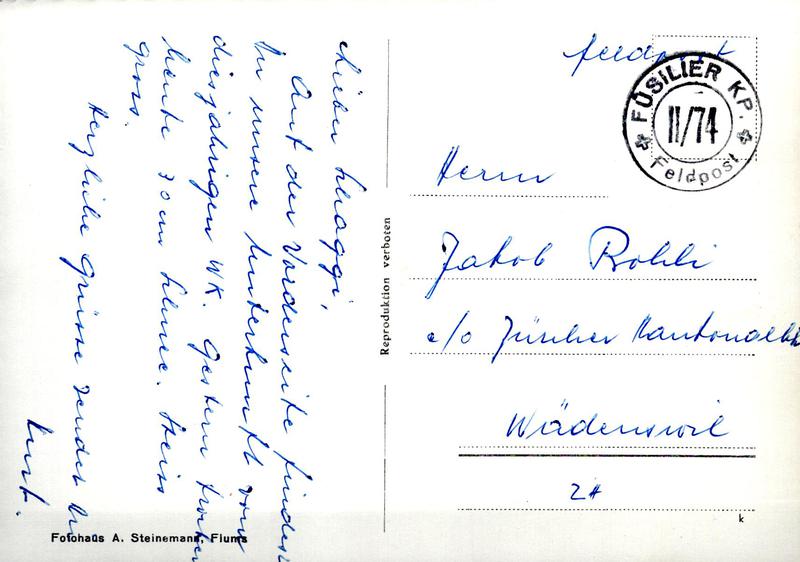 Lieber Schaggi,
Auf der Vorderseite findest
Du unsere Unterkunft vom
diesjährigen WK. Gestern trocken
heute 30 cm Schnee.
gross.
Herzliche Grüsse sendet Dir
Kurt.
Fotohaus A. Steinemann, Flums
Reproduktion verboten
Feldpost
FÜSILIER KP.
II/74
Feldpost
Herrn
Jakob Bohli
c/o Zürcher Kantonalbk
Wädenswil
ZH
k